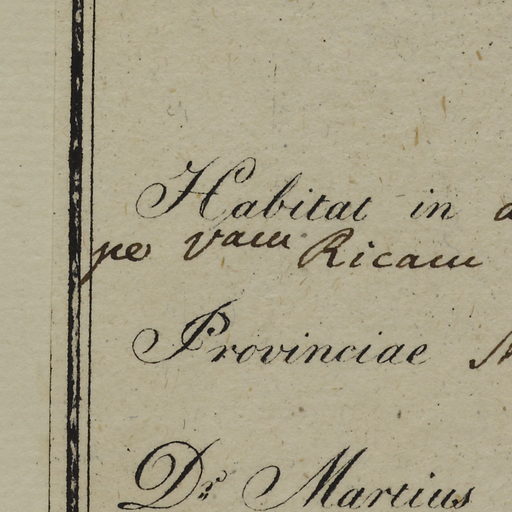 Habitat in
vam Ricam
Provinciae
Dr. Martius